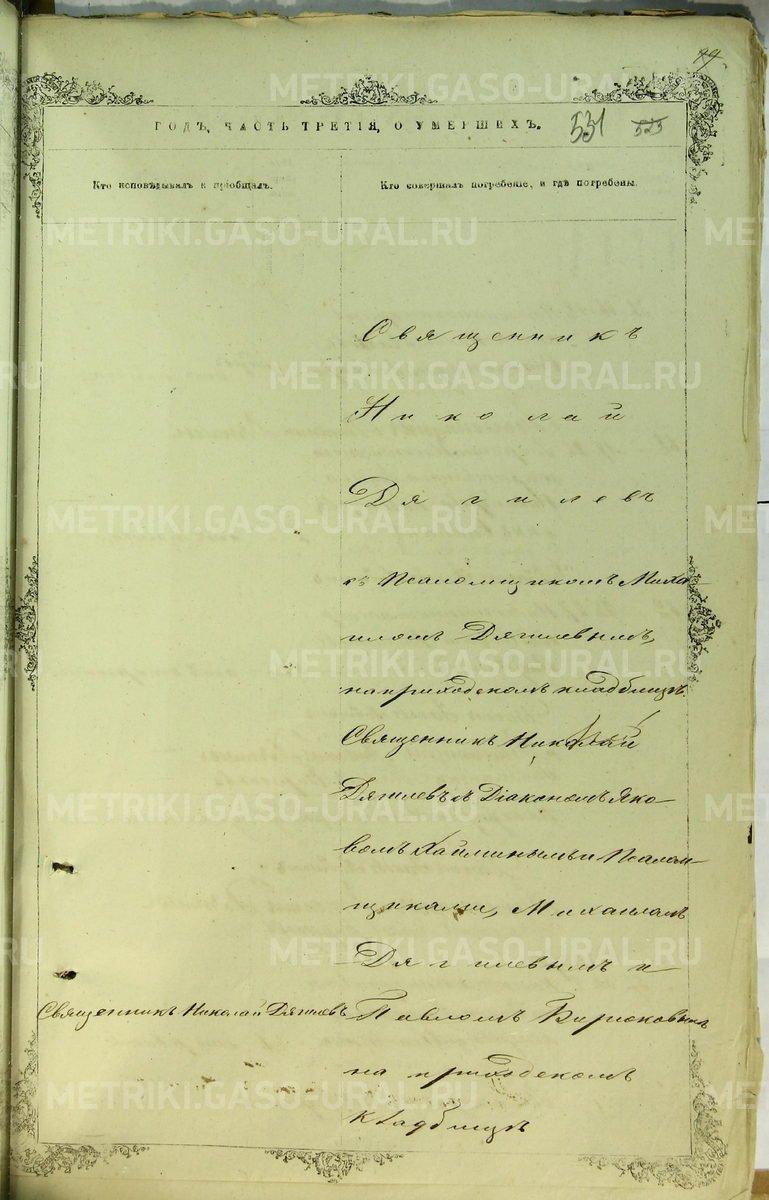 99
METRIKI.GASO-URAL.RU
ГОДЪ, ЧАСТЬ ТРЕТІЯ, О УМЕРШИХЪ.
531
525
Кто исповѣдывалъ и пріобщалъ.
Кто совершалъ погребеніе, и гдѣ погребены.
Священникъ
Николай
Дягилевъ
съ Псаломщикомъ Миха-
иломъ Дягилевымъ,
на приходскомъ кладбищѣ.
Священникъ Николай
Дягилевъ съ Діакономъ Яко-
вомъ Хайминымъ и Псалом-
щиками, Михаиломъ
Дягилевымъ и
Священникъ Николай Дягилевъ
Павломъ Бирюковымъ
на приходскомъ
кладбищѣ